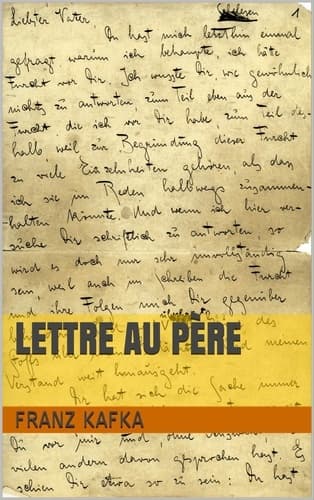 Schelesen
1
Liebster Vater,
Du hast mich letzthin einmal
gefragt, warum ich behaupte, ich hätte
Furcht vor Dir. Ich wusste Dir, wie gewöhnlich,
nichts zu antworten, zum Teil eben aus der
Furcht die ich vor Dir habe, zum Teil des-
halb weil zur Begründung dieser Furcht
zu viele Einzelnheiten gehören, als dass
ich sie im Reden halbwegs zusammen-
halten könnte. Und wenn ich hier ver-
suche Dir schriftlich zu antworten, so
wird es doch nur sehr unvollständig
sein, weil auch im Schreiben die Furcht
und ihre Folgen mich Dir gegenüber
LETTRE AU PÈRE
Verstand weit hinausgeht.
Dir hat sich die Sache immer
FRANZ KAFKA
Du vor mir und, ohne
vielen andern davon gesprochen hast. Es
schien Dir etwa so zu sein: Du hast